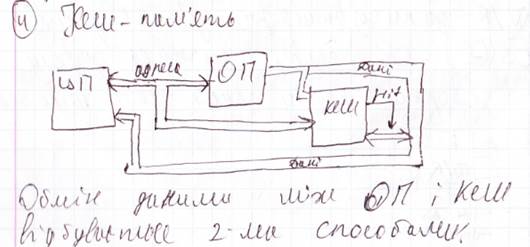 4 Кеш-пам'ять
адреса
ЦП
ОП
Дані
Кеш
Hit
Дані
Обмін даними між ОП і Кеш
відбувається 2-ма способами